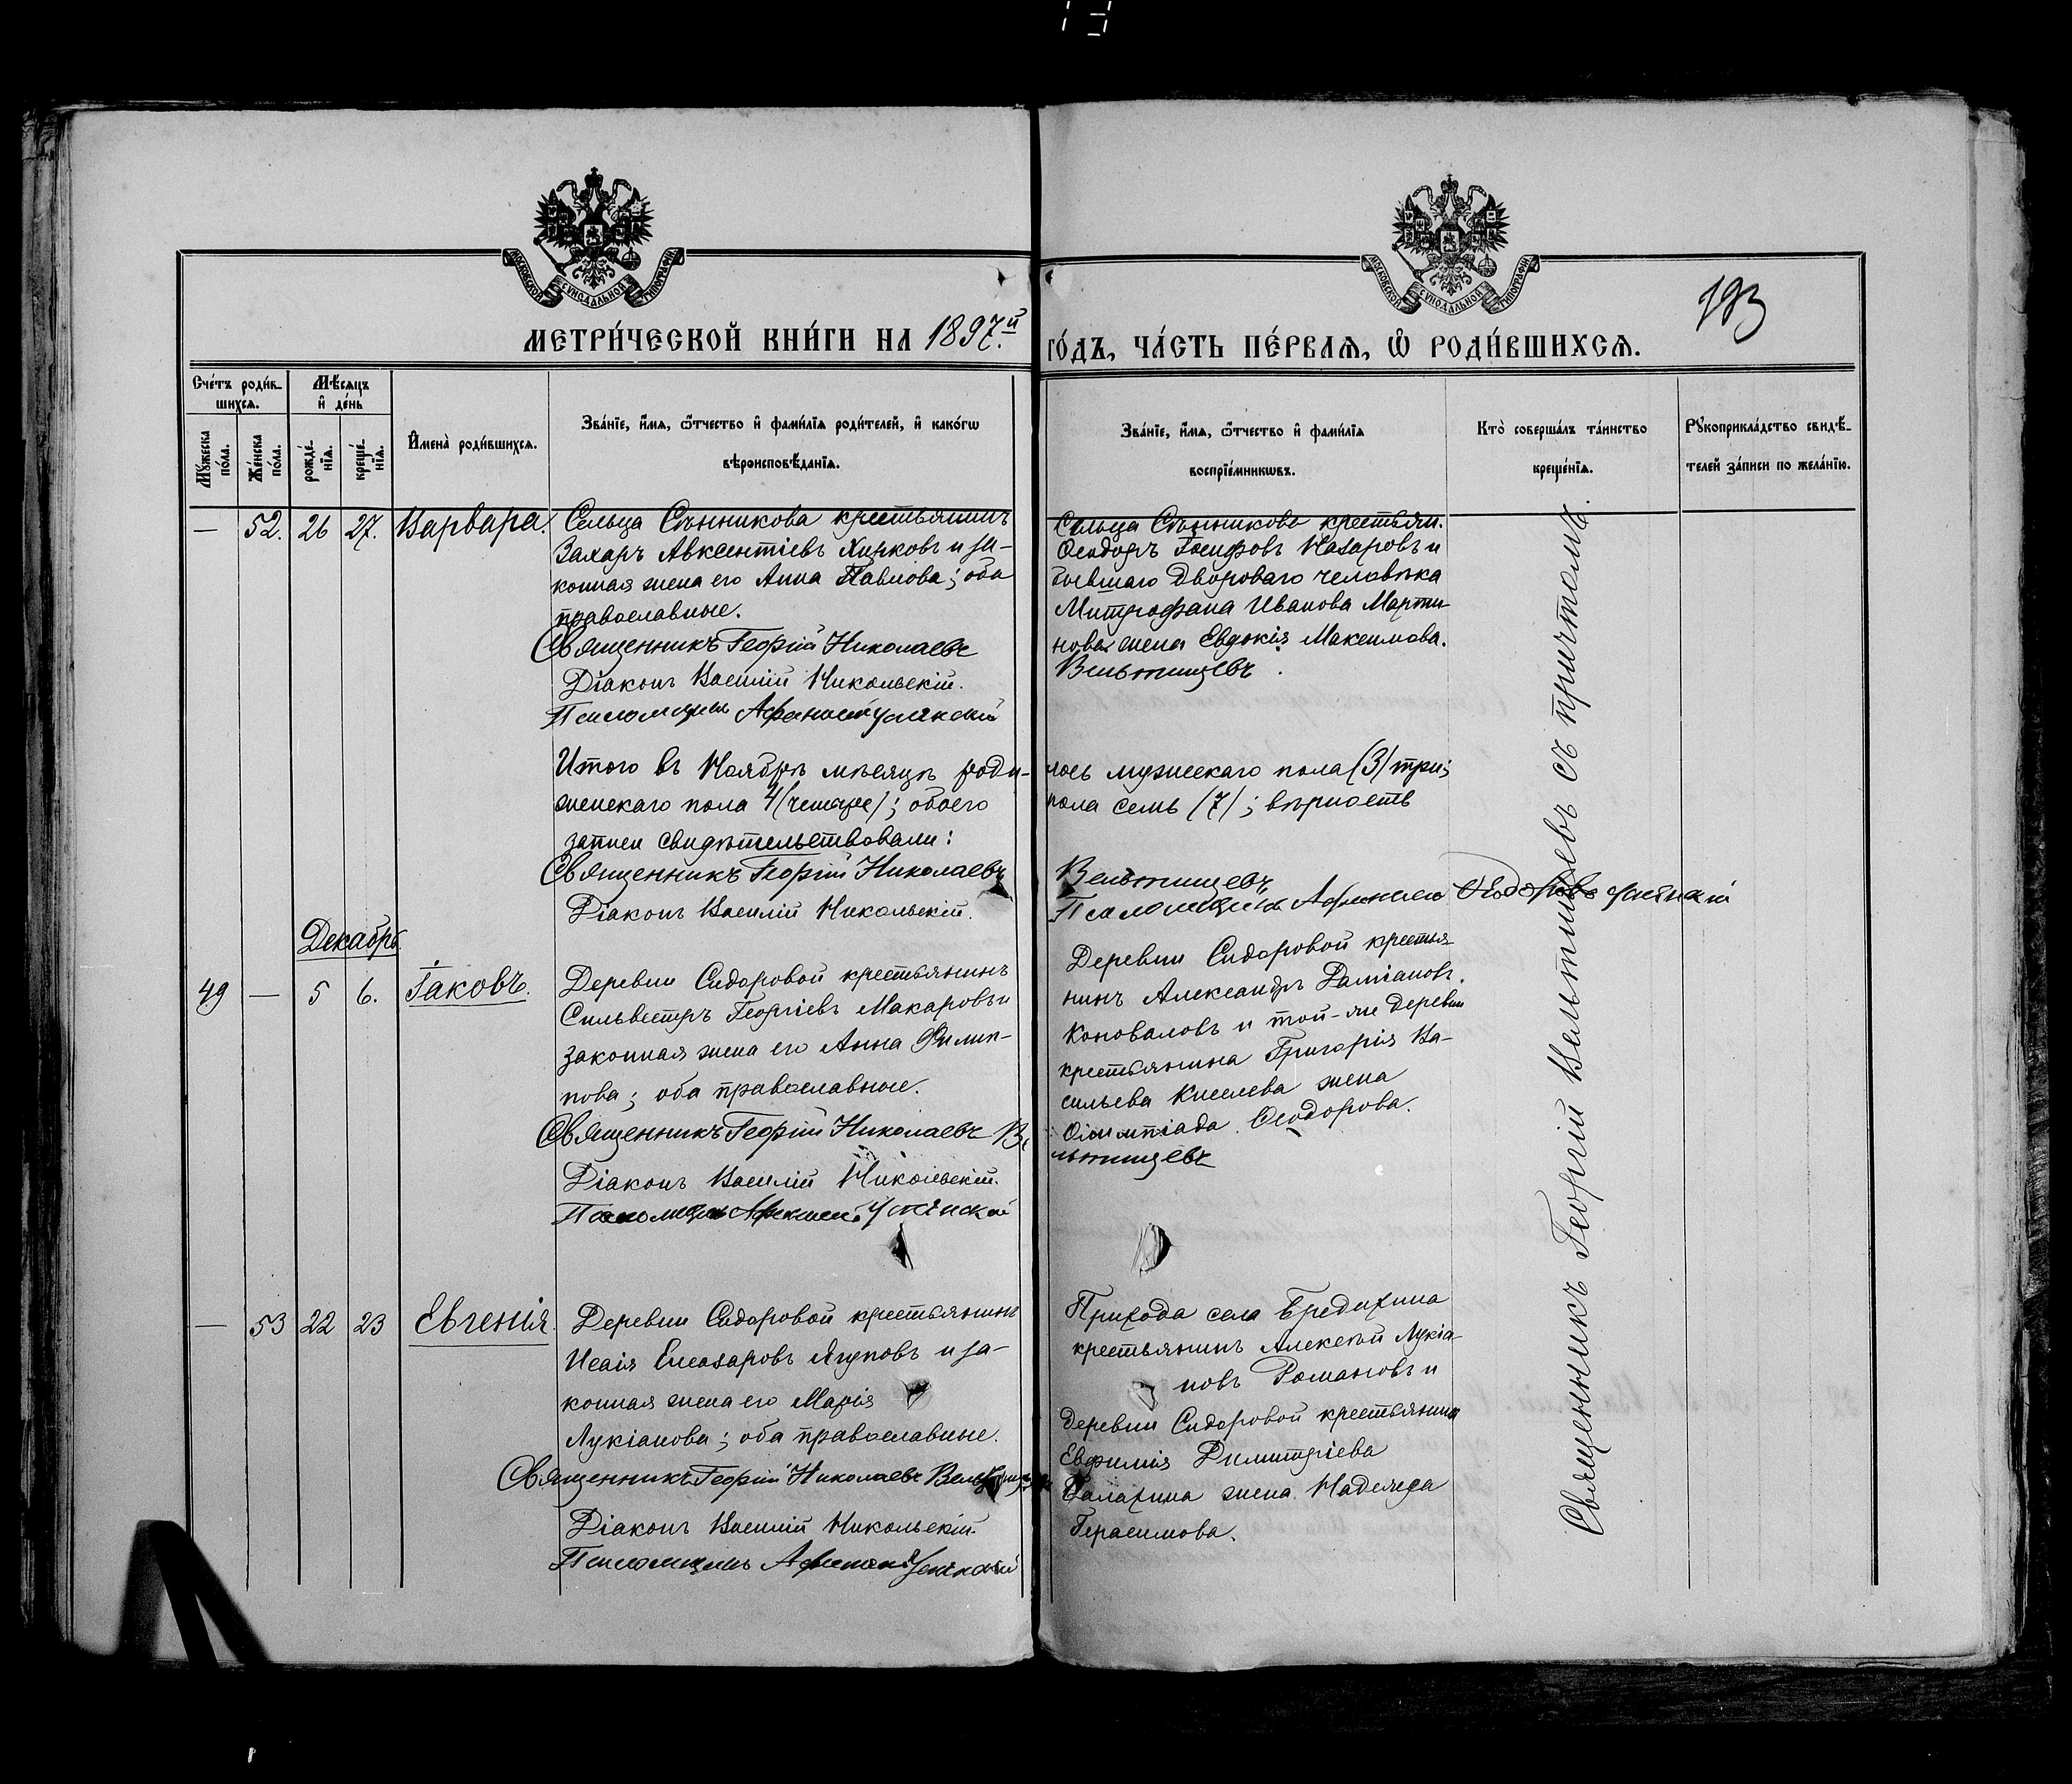 193
МОСКОВСКОЙ СУНОДАЛЬНОЙ ТИПОГРАФІИ
МОСКОВСКОЙ СУНОДАЛЬНОЙ ТИПОГРАФІИ
МЕТРИ́ЧЕСКОЙ КНИ́ГИ НА 1897.й
ГО́ДЪ, ЧА́СТЬ ПЕ́РВАѦ, Ѡ҆ РОДИ́ВШИХСѦ.
Сче́тъ роди́в-
шихсѧ.
Мѣ́сѧцъ
и҆ де́нь
Мꙋ́жеска
по́ла.
Же́нска
по́ла.
рожде́-
нїѧ.
креще́-
нїѧ.
И҆мена̀ роди́вшихсѧ.
Зва́нїе, и҆́мѧ, ѻ҆́тчество и҆ фами́лїѧ роди́телей, и҆ како́гѡ
вѣроисповѣ́данїѧ.
Зва́нїе, и҆́мѧ, ѻ҆́тчество и҆ фами́лїѧ
воспрїе́мникѡвъ.
Кто̀ соверша́лъ та́инство
креще́нїѧ.
Рꙋкоприкла́дство свидѣ́-
телей за́писи по жела́нїю.
— 52. 26 27. Варвара.
Сельца Сѣнникова крестьянинъ
Захаръ Авксентіевъ Хирковъ и за-
конная жена его Анна Павлова; оба
православные.
Священникъ Георгій Николаевъ
Діаконъ Василій Никольскій.
Псаломщикъ Афанасій Успѣнскій
Сельца Сѣнникова крестьян.
Ѳеодоръ Іосифовъ Назаровъ и
бывшаго двороваго человѣка
Митрофана Иванова Марти-
нова жена Евдокія Максимова.
Вельтищевъ.
Итого въ Ноябрѣ мѣсяцѣ роди-
лось мужескаго пола (3) три;
женскаго пола 4 (четыре); обоего
пола семь (7); вѣрность
записи свидѣтельствовали:
Священникъ Георгій Николаевъ
Вельтищевъ
Діаконъ Василій Никольскій.
Псаломщикъ Афанасій Ѳеодоровъ Успѣнскій
Декабрь
49 — 5 6. Іаковъ.
Деревни Сидоровой крестьянинъ
Сильвестръ Георгіевъ Макаровъ и
законная жена его Анна Филип-
пова; оба православные.
Священникъ Георгій Николаевъ Ве
льтищевъ
Діаконъ Василій Никольскій.
Псаломщикъ Афанасій Успѣнскій
Деревни Сидоровой крестья-
нинъ Александръ Даміановъ
Коноваловъ и той-же деревни
крестьянина Григорія Ва-
сильева Киселева жена
Олимпіада Ѳеодорова.
— 53 22 23 Евгенія.
Деревни Сидоровой крестьянинъ
Исаія Елеазаровъ Ягуповъ и за-
конная жена его Марія
Лукіанова; оба православные.
Священникъ Георгій Николаевъ Вельтищевъ
Діаконъ Василій Никольскій.
Псаломщикъ Афанасій Успѣнскій
Прихода села Бредихина
крестьянинъ Алексѣй Лукіа-
новъ Романовъ и
деревни Сидоровой крестьянина
Евфимія Димитріева
Балахина жена Надежда
Герасимова.
Священникъ Георгій Вельтищевъ съ причтомъ.